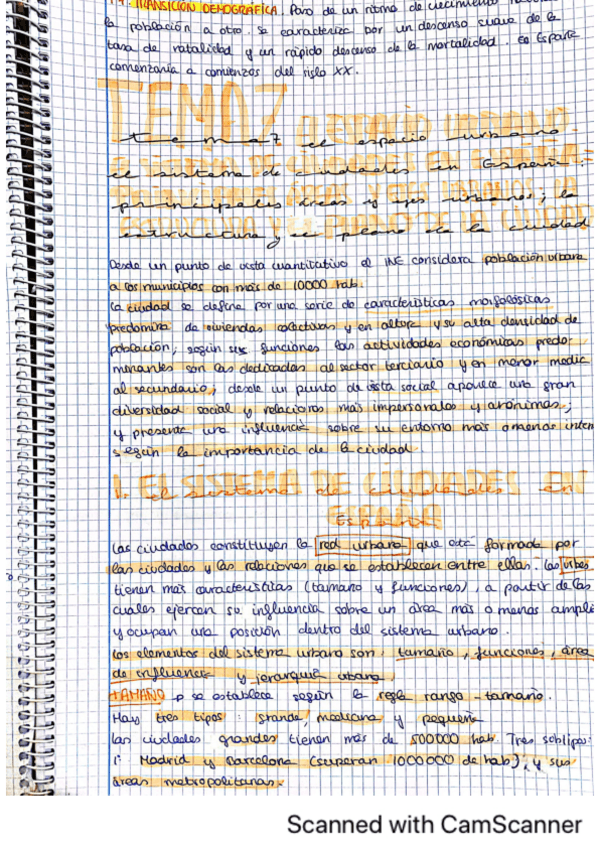 TRANSICIÓN DEMOGRÁFICA. Paso de un ritmo de crecimiento
la población a otro. Se caracteriza por un descenso suave de la
tasa de natalidad y un rápido descenso de la mortalidad. En España
comenzaría a comienzos del siglo XX.
TEMA 7
tema 7 el espacio urbano.
el sistema de ciudades en España:
principales áreas y ejes urbanos; la
estructura y el plano de la ciudad
Desde un punto de vista cuantitativo el INE considera población urbana
a los municipios con más de 10000 hab.
La ciudad se define por una serie de características morfológicas
predominio de viviendas colectivas y en altura y su alta densidad de
población, según sus funciones las actividades económicas predo
minantes son las dedicadas al sector terciario y en menor medic
al secundario; desde un punto de vista social aparece una gran
diversidad social y relaciones más impersonales y anónimas;
y presenta una influencia sobre su entorno más o menos inten
s según la importancia de la ciudad.
1. El sistema de ciudades en
España
Las ciudades constituyen la red urbana que está formada por
las ciudades y las relaciones que se establecen entre ellas. Las urbes
tienen más características (tamaño y funciones), a partir de las
cuales ejercen su influencia sobre un área más o menos ampli
y ocupan una posición dentro del sistema urbano.
Los elementos del sistema urbano son: tamaño, funciones, área
de influencia y jerarquía urbana.
TAMAÑO se establece según la regla rango-tamaño.
Hay tres tipos: grande, mediana y pequeña
Las ciudades grandes tienen más de 500000 hab. Tres subtipos:
1º Madrid y Barcelona (superan 1000000 de hab), y sus
áreas metropolitanas.
Scanned with CamScanner